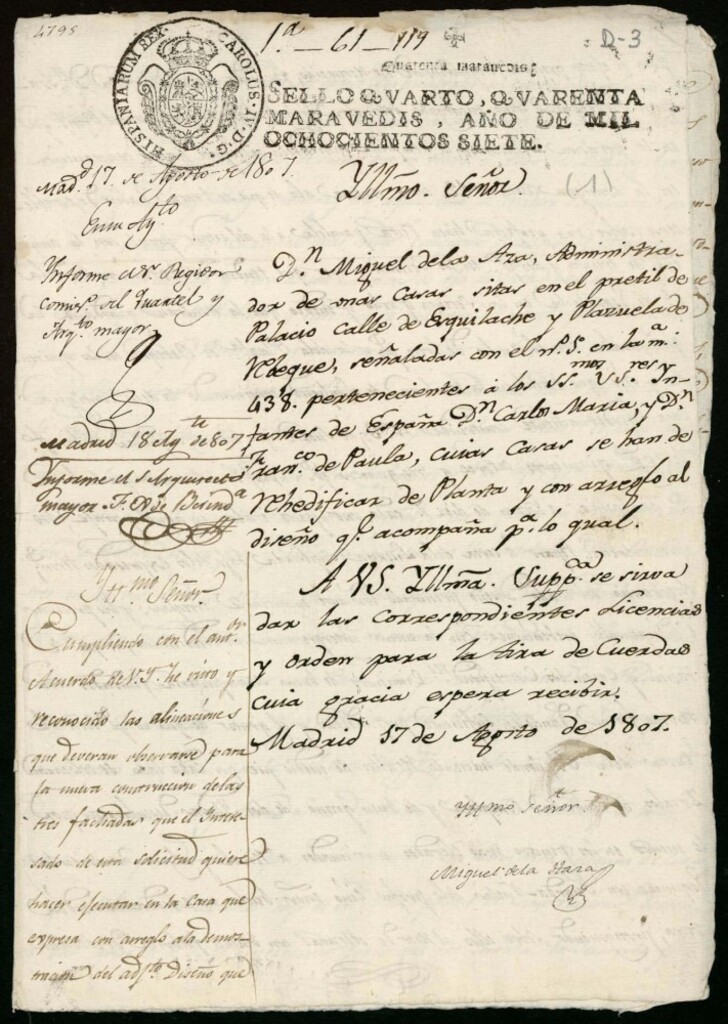 4795
HISPANIARUM REX. CAROLUS. IV. D. G.
1ª - 61 - 119
D-3
Quarenta maravedis.
SELLO QVARTO, QVARENTA
MARAVEDIS, AÑO DE MIL
OCHOCIENTOS SIETE.
(1)
Madd. 17. de Agosto de 1807.
En su Aytto
Informe el Sr. Regidor
Comisº. del Quartel y
Arqto mayor
Madrid 18 Agte de 807
Informe el S Arquitecto
mayor
Yllmo. Señor.
Dn. Miguel dela Aza, Administra-
dor de unas Casas sitas en el pretil de
Palacio Calle de Esquilache y Plazuela de
Rebeque, señaladas con el nº. 5º. en la mª:
438. pertenecientes á los SSmos. Sres. Yn-
fantes de España Dn. Carlos Maria, y Dn.
Franco. de Paula, cuias Casas se han de
Rhedificar de Planta y con arreglo al
diseño qe. acompaña pª. lo qual.
A VS. Yllma. Suppca. se sirva
dar las Correspondientes Licencias
y orden para la tira de Cuerdas
cuia gracia espera recibir.
Madrid 17 de Agosto de 1807.
Yllmo Señor
Miguel de la Haza
Yllmo Señor.
Cumpliendo con el antor.
Acuerdo de V.I. he visto y
reconocido las alineaciones
que deveran observarse para
la nueva construccion delas
tres fachadas que el Intere-
sado de esta solicitud quiere
hacer ejecutar en la Casa que
expresa con arreglo ala demos-
tracion del adjto. Diseño que